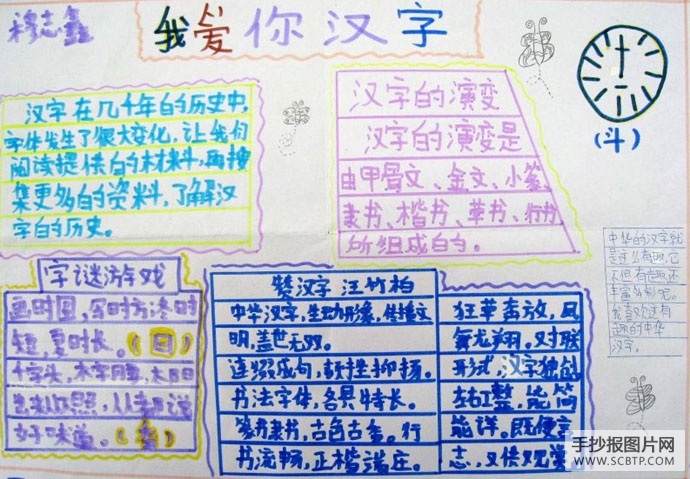 穆志鑫
我爱你汉字
(斗)
汉字在几千年的历史中,
字体发生了很大变化,让我们
阅读提供的材料,再搜
集更多的资料,了解汉
字的历史。
汉字的演变
汉字的演变是
由甲骨文、金文、小篆、
隶书、楷书、草书、行书
所组成的。
中华的汉字就
是这么有趣,它
不但有趣还
丰富
我喜欢这有
趣的中华
汉字。
字谜游戏
画时圆,写时方,冬时
短,夏时长。(日)
十字头,太阳
好味道。(香)
赞汉字 汪竹柏
中华汉字,生动形象,传播文
明,盖世无双。
连缀成句,顿挫抑扬。
书法字体,各具特长。
篆书隶书,古色古香。行
书流畅,正楷端庄。
狂草奔放,凤
舞龙翔。对联
形式,汉字独创
左右工整,能简
能详。既便言
志,又供观赏
手抄报图片网
WWW.SCBTP.COM